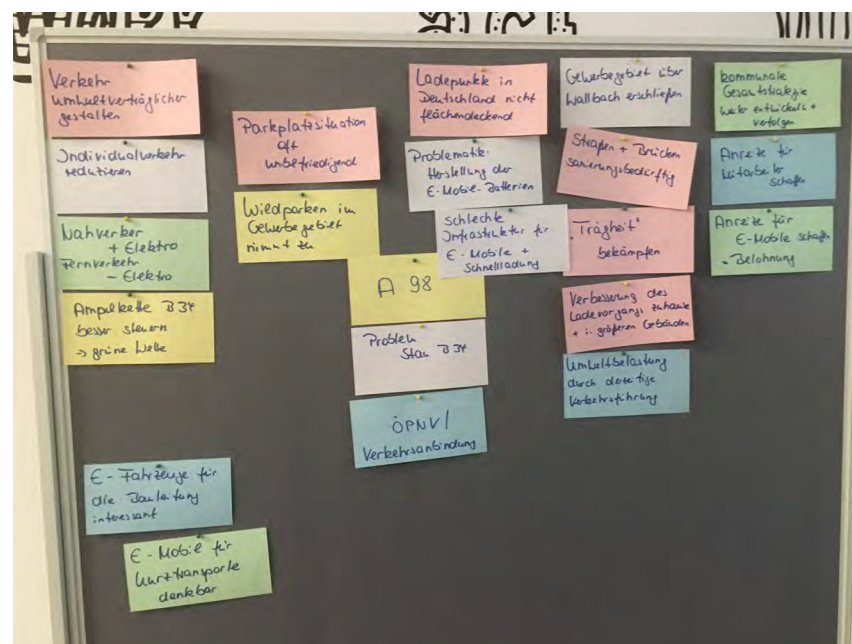 Verkehr
umweltverträglicher
gestalten
Individualverkehr
reduzieren
Nahverker
+ Elektro
Fernverkehr
- Elektro
Ampelkette B34
besser steuern
-> grüne Welle
E-Fahrzeuge für
die Bauleitung
interessant
E-Mobil für
Kurztransporte
denkbar
Parkplatzsituation
oft
unbefriedigend
Wildparken im
Gewerbegebiet
nimmt zu
A 98
Problem
Stau B34
ÖPNV/
Verkehrsanbindung
Ladepunkte in
Deutschland nicht
flächendeckend
Problematik:
Herstellung der
E-Mobil-Batterien
schlechte
Infrastruktur für
E-Mobile +
Schnellladung
Gewerbegebiet über
Wallbach erschließen
Straßen + Brücken
sanierungsbedürftig
"Trägheit"
bekämpfen
Verbesserung des
Ladevorgangs zuhause
+ i. größeren Gebäuden
Umweltbelastung
durch derzeitige
Verkehrsführung
kommunale
Gesamtstrategie
weiter entwickeln +
verfolgen
Anreize für
Mitarbeiter
schaffen
Anreize für
E-Mobile schaffen
Belohnung